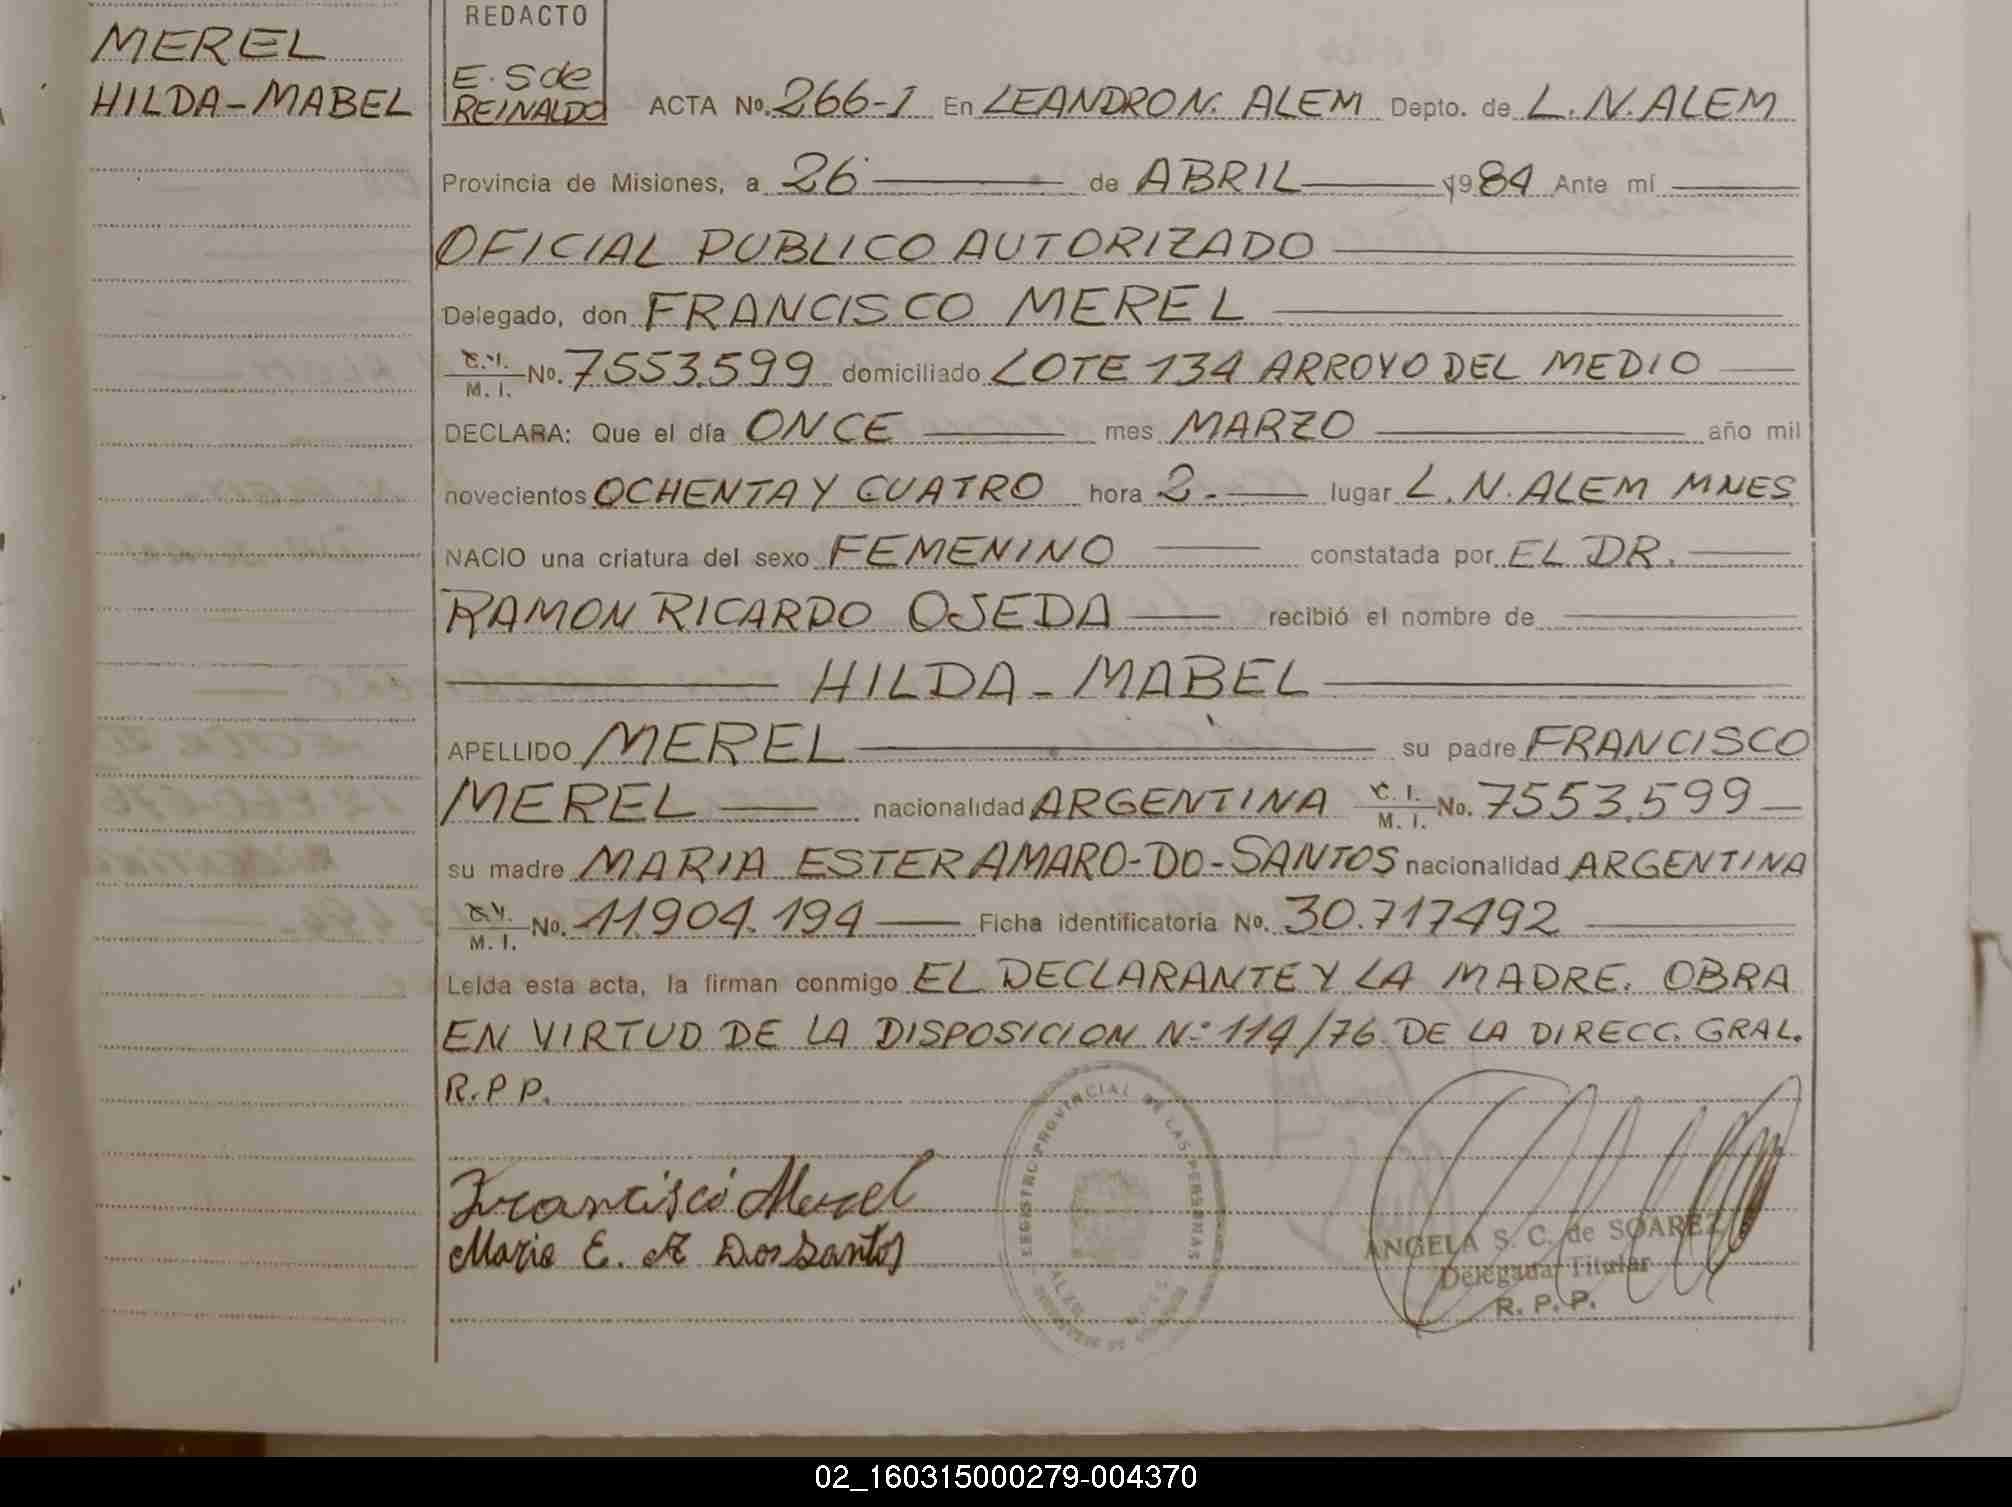 MEREL
HILDA-MABEL
REDACTO
E. S de
REINALDO
ACTA No. 266-1 En LEANDRO N. ALEM Depto. de L. N. ALEM
Provincia de Misiones, a 26 de ABRIL 1984 Ante mí
OFICIAL PUBLICO AUTORIZADO
Delegado, don FRANCISCO MEREL
C. I. M. I. No. 7553.599 domiciliado LOTE 134 ARROYO DEL MEDIO
DECLARA: Que el día ONCE mes MARZO año mil
novecientos OCHENTA Y CUATRO hora 2.- lugar L. N. ALEM MNES
NACIO una criatura del sexo FEMENINO constatada por EL DR.
RAMON RICARDO OJEDA recibió el nombre de
HILDA - MABEL
APELLIDO MEREL su padre FRANCISCO
MEREL nacionalidad ARGENTINA C. I. M. I. No. 7553.599
su madre MARIA ESTER AMARO-DO-SANTOS nacionalidad ARGENTINA
C. I. M. I. No. 11.904.194 Ficha identificatoria No. 30.717492
Leída esta acta, la firman conmigo EL DECLARANTE Y LA MADRE. OBRA
EN VIRTUD DE LA DISPOSICION N° 114/76 DE LA DIRECC. GRAL.
R.P P.
Francisco Merel
Maria E. A Dos Santos
REGISTRO PROVINCIAL DE LAS PERSONAS
ANGELA S. C. de SOAREZ
Delegada Titular
R. P. P.
02_160315000279-004370